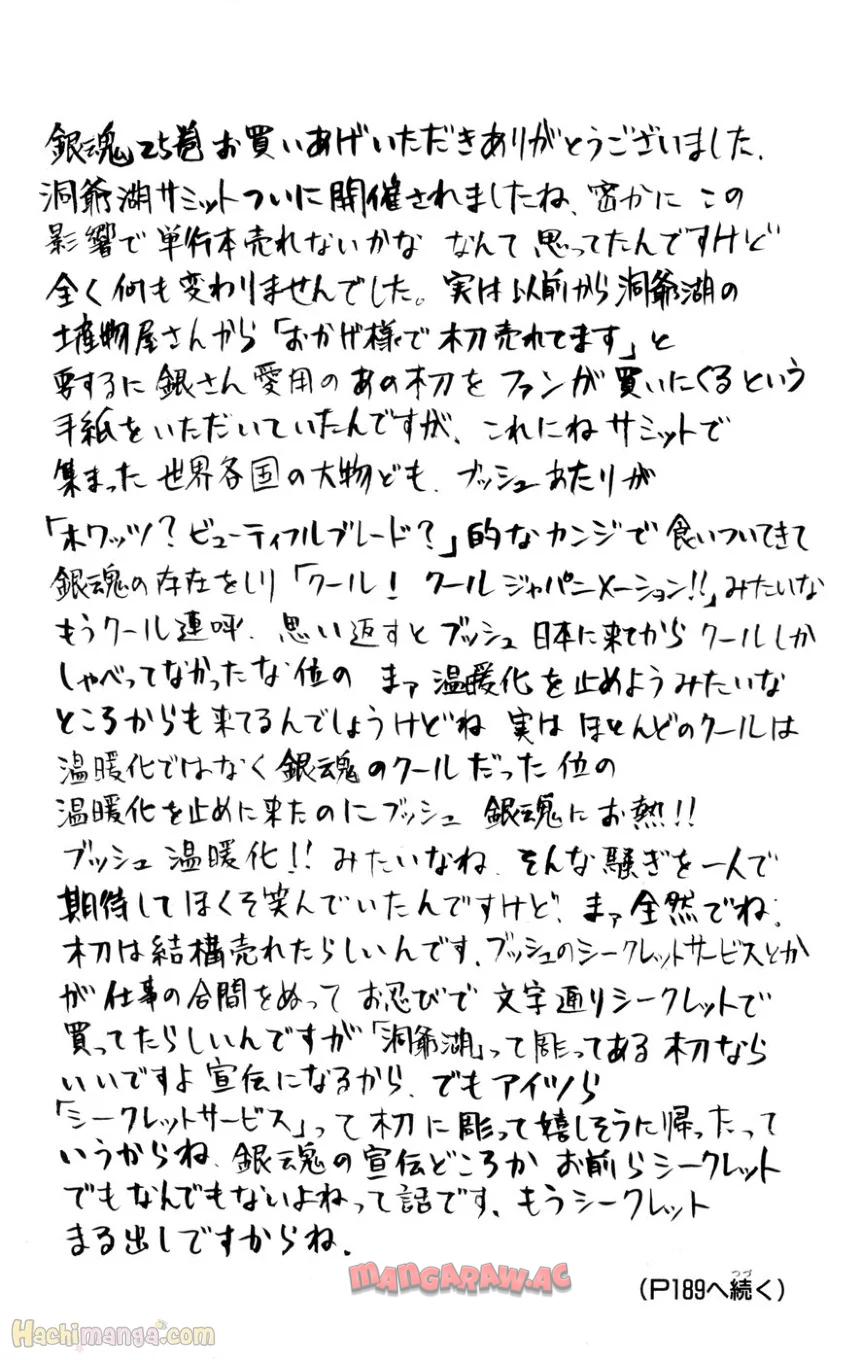 銀魂25巻お買いあげいただきありがとうございました.
洞爺湖サミットついに開催されましたね、密かに この
影響で単行本売れないかな なんて思ってたんですけど
全く何も変わりませんでした。実は以前から洞爺湖の
土産物屋さんから「おかげ様で木刀売れてます」と
要するに銀さん愛用のあの木刀を ファンが買いにくるという
手紙をいただいていたんですが、これにねサミットで
集まった世界各国の大物ども、ブッシュあたりが
「ホワッツ?ビューティフルブレード?」的なカンジで食いついてきて
銀魂の存在をしり「クール! クールジャパニメーション!!」みたいな
もうクール連呼、思い返すとブッシュ日本に来てからクールしか
しゃべってなかったな位の まァ温暖化を止めようみたいな
ところからも来てるんでしょうけどね 実はほとんどのクールは
温暖化ではなく銀魂のクールだった位の
温暖化を止めに来たのにブッシュ 銀魂にお熱!!
ブッシュ温暖化!!みたいなね、そんな騒ぎを一人で
期待してほくそ笑んでいたんですけど、まァ全然でね、
木刀は結構売れたらしいんです、ブッシュのシークレットサービスとか
が仕事の合間をぬって お忍びで文字通りシークレットで
買ってたらしいんですが「洞爺湖」って彫ってある木刀なら
いいですよ宣伝になるから、でもアイツら
「シークレットサービス」って木刀に彫って嬉しそうに帰ったって
いうからね、銀魂の宣伝どころか お前らシークレット
でもなんでもないよねって話です、もうシークレット
まる出しですからね.
MANGARAW.AC
(P189へ続く)
つづ
Hachimanga.com